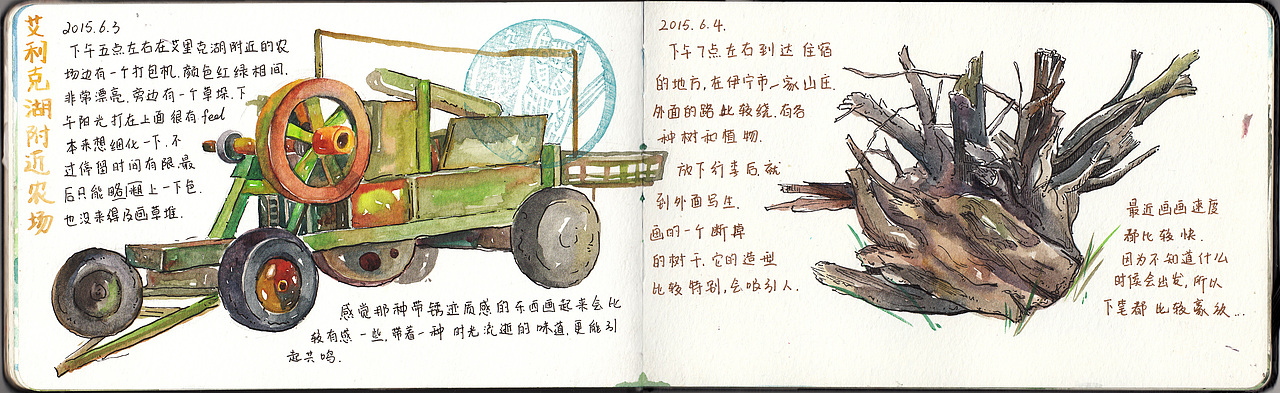 艾利克湖附近农场
2015.6.3
下午五点左右在艾里克湖附近的农
场边有一个打包机.颜色红绿相间.
非常漂亮.旁边有一个草垛.下
午阳光打在上面很有feel
本来想细化一下.不
过停留时间有限.最
后只能略粗上一下色.
也没来得及画草堆.
感觉那种带锈迹质感的东西画起来会比
较有感一些.带着一种时光流逝的味道.更能引
起共鸣.
2015.6.4.
下午7点左右到达住宿
的地方,在伊宁市一家山庄.
外面的路比较绕.有各
种树和植物.
放下行李后就
到外面写生.
画的一个断掉
的树干.它的造型
比较特别,会吸引人.
最近画画速度
都比较快.
因为不知道什么
时候会出发,所以
下笔都比较豪放...